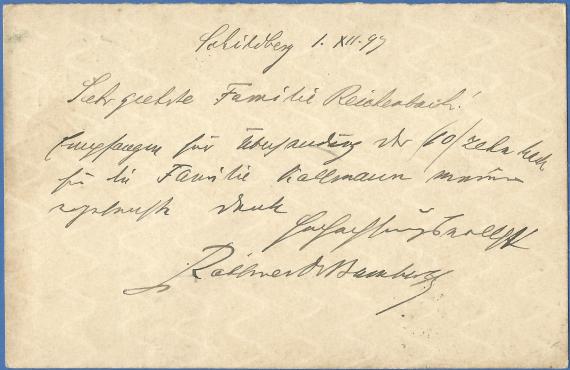 Schildberg 1. XII. 97
Sehr geehrte Familie Reichenbach!
Empfangen für Übersendung der 10/zehn Mark
für die Familie Kallmann meinen
Dank
Hochachtungsvollst